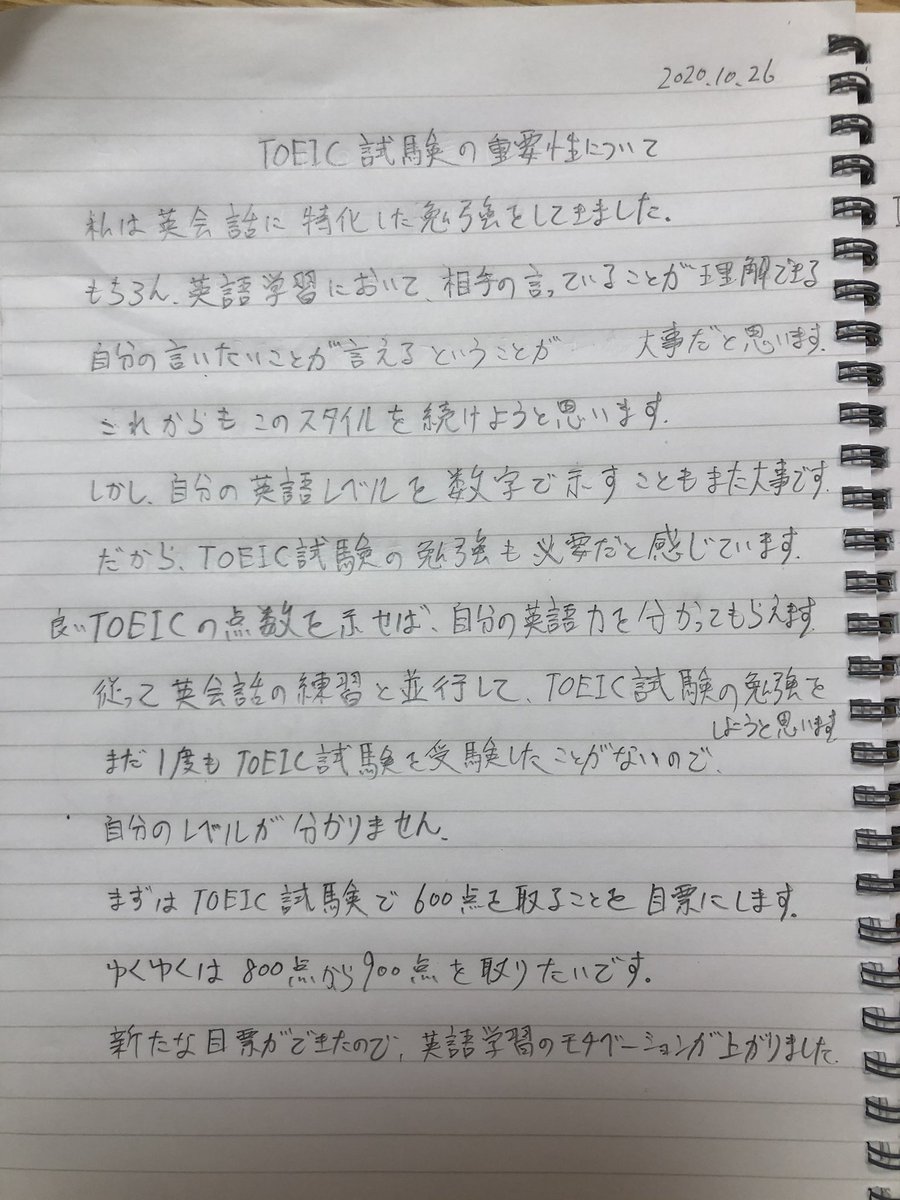 2020.10.26
TOEIC試験の重要性について
私は英会話に特化した勉強をしてきました。
もちろん、英語学習において、相手の言っていることが理解できる
自分の言いたいことが言えるということが 大事だと思います。
これからもこのスタイルを続けようと思います。
しかし、自分の英語レベルを数字で示すこともまた大事です。
だから、TOEIC試験の勉強も必要だと感じています。
良いTOEICの点数を示せば、自分の英語力を分かってもらえます。
従って英会話の練習と並行して、TOEIC試験の勉強を
しようと思います
まだ1度もTOEIC試験を受験したことがないので、
自分のレベルが分かりません。
まずはTOEIC試験で600点を取ることを目票にします。
ゆくゆくは800点から900点を取りたいです。
新たな目票ができたので、英語学習のモチベーションが上がりました。